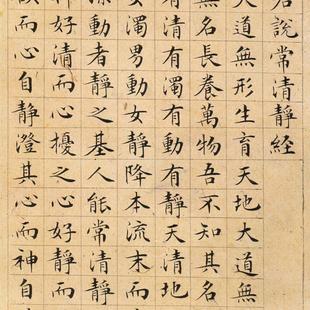 說常清靜經
大道無形生育天地大道無
無名長養萬物吾不知其名
有清有濁有動有靜天清地
女濁男動女靜降本流末而
源動者靜之基人能常清靜
神好清而心擾之心好靜而
欲而心自靜澄其心而神自